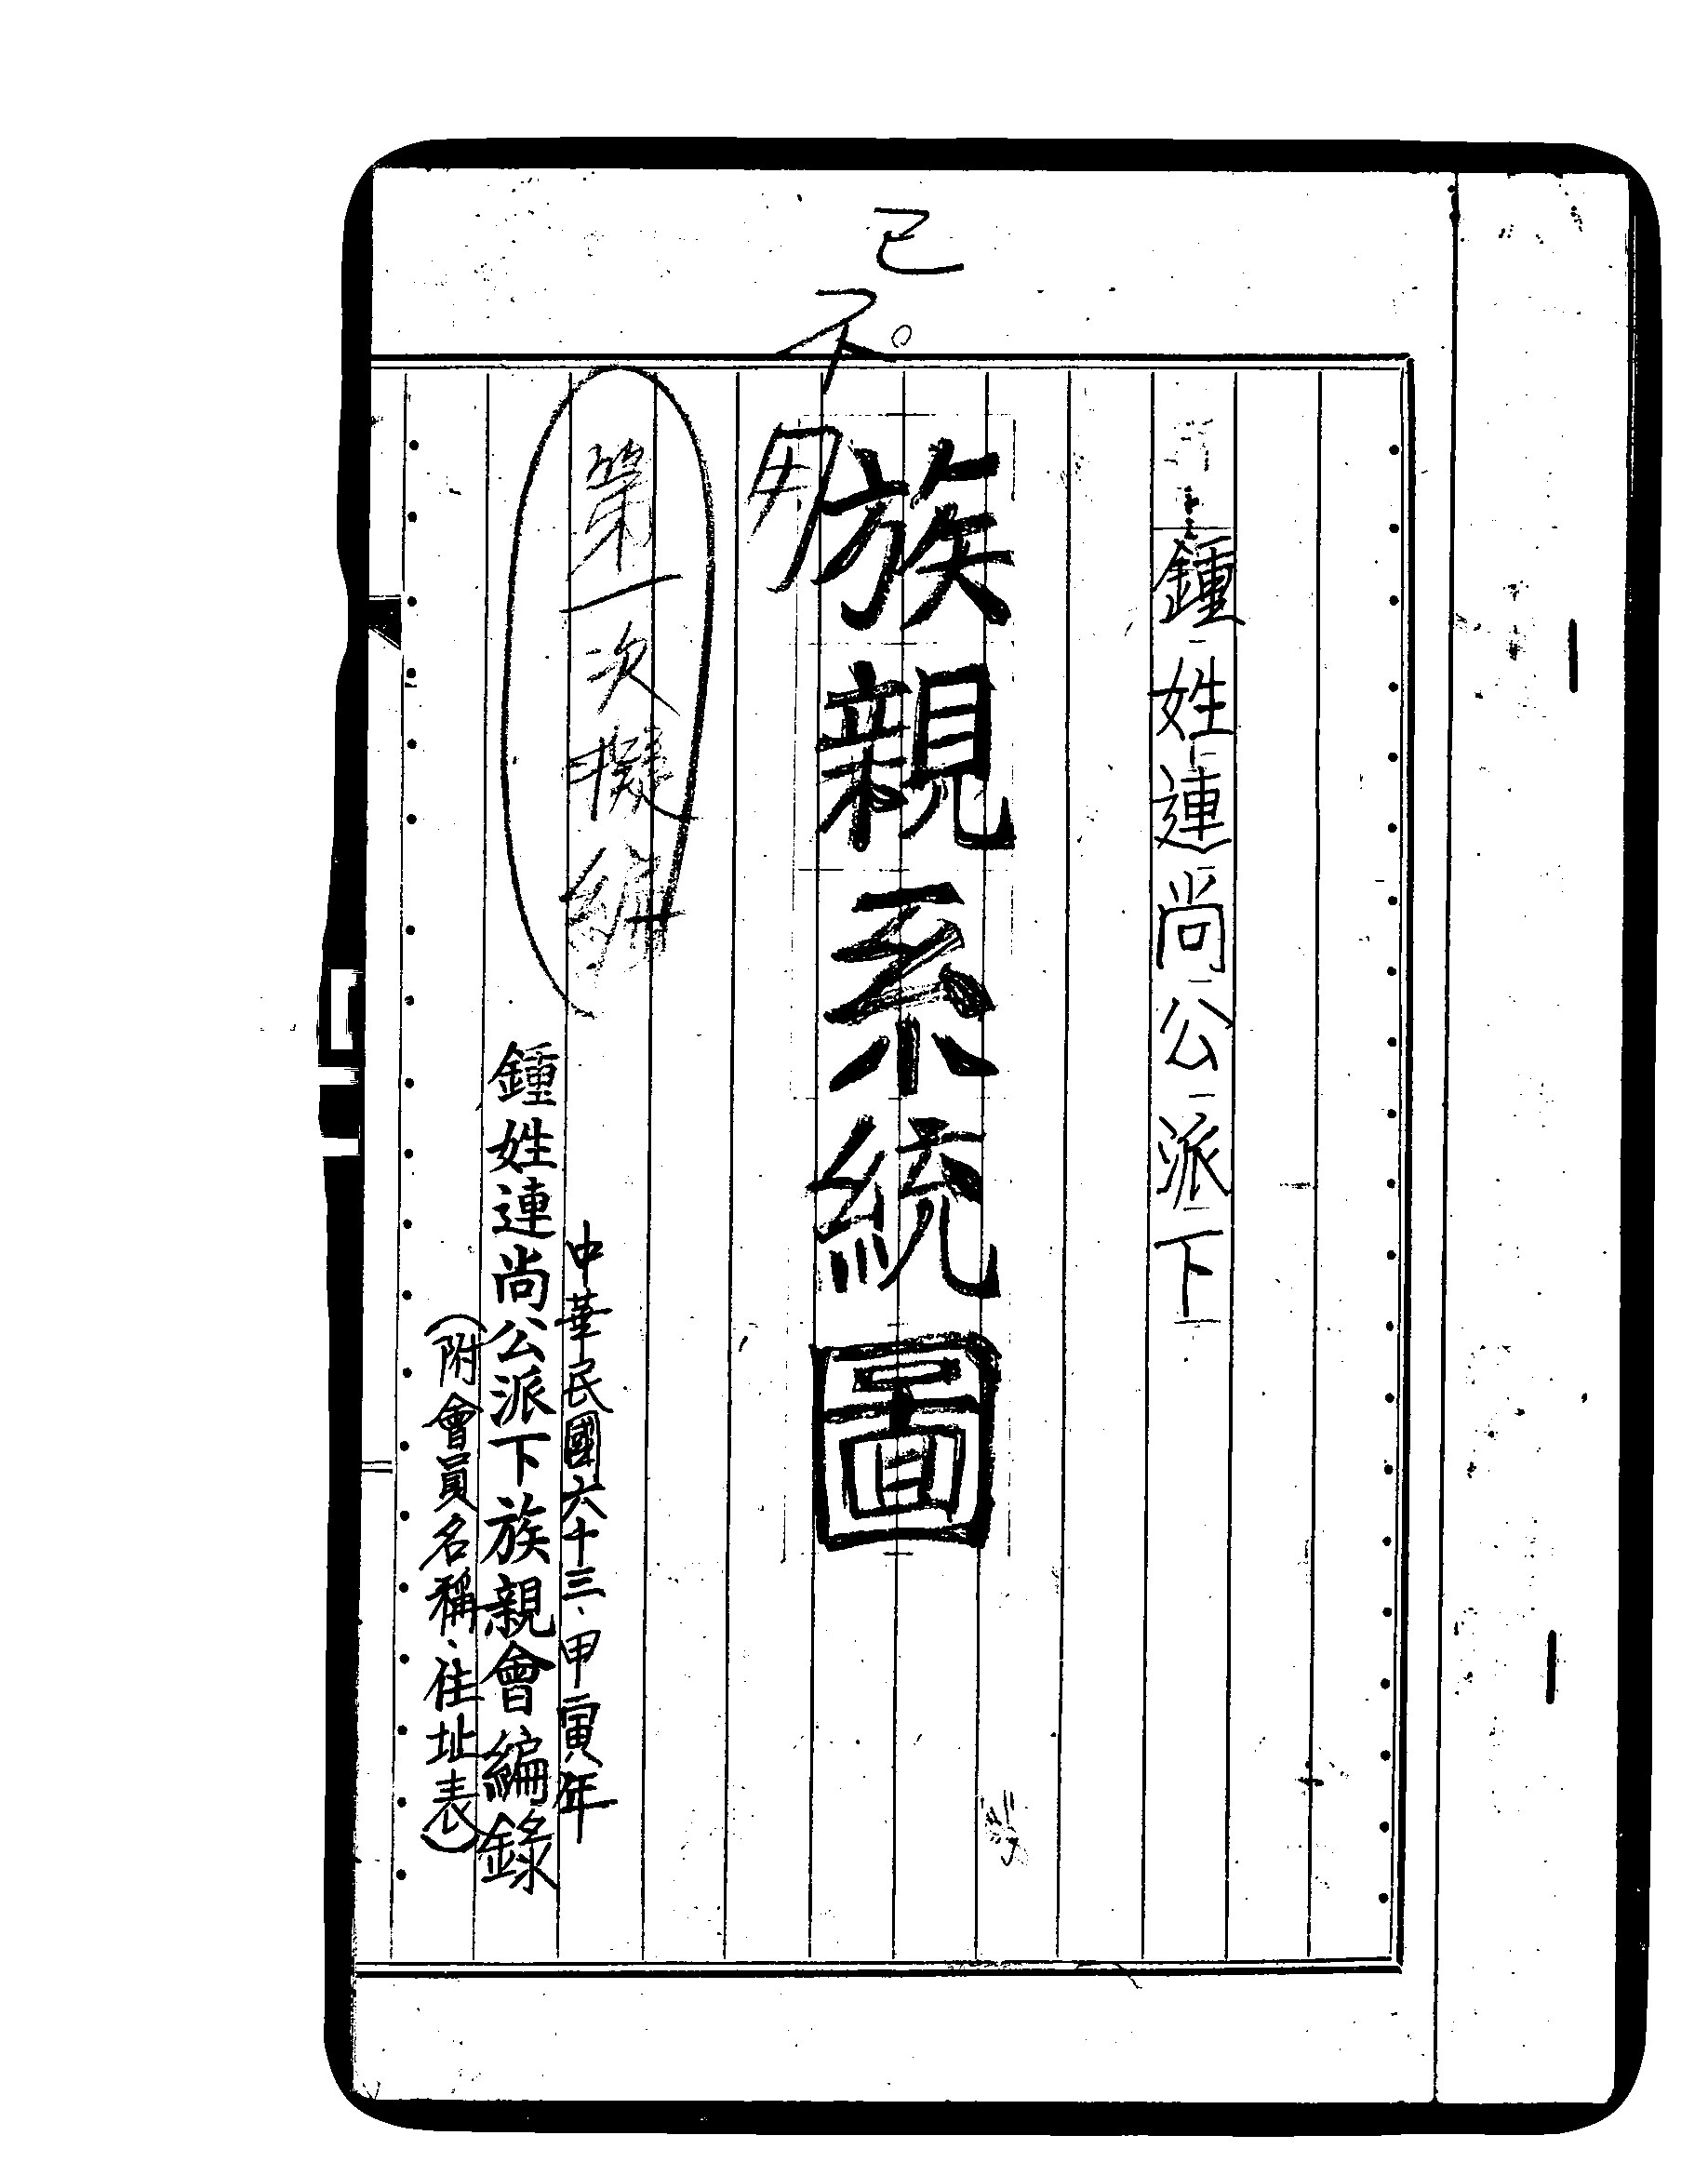 鍾姓連尚公派下
族親系統圖
已不用
第一次擬編
中華民國六十三、甲寅年
鍾姓連尚公派下族親會編錄
(附會員名稱、住址表)